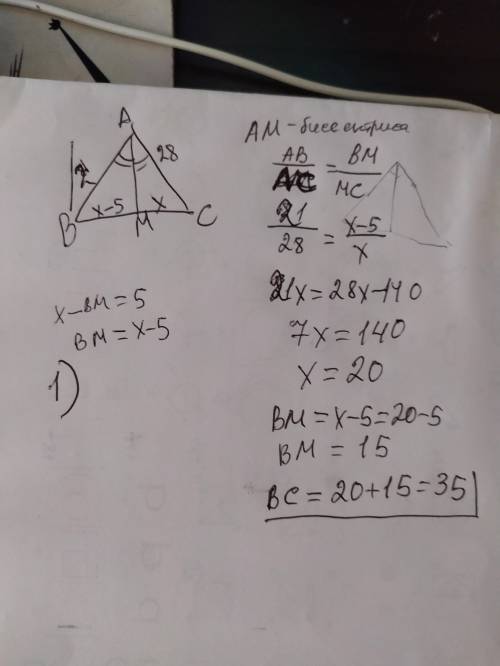 A
28
B x-5 M x C
x-BM=5
BM=x-5
1)
AM-биссектриса
AB/AC = BM/MC
21/28 = x-5/x
21x=28x-140
7x=140
x=20
BM=x-5=20-5
BM=15
BC=20+15=35